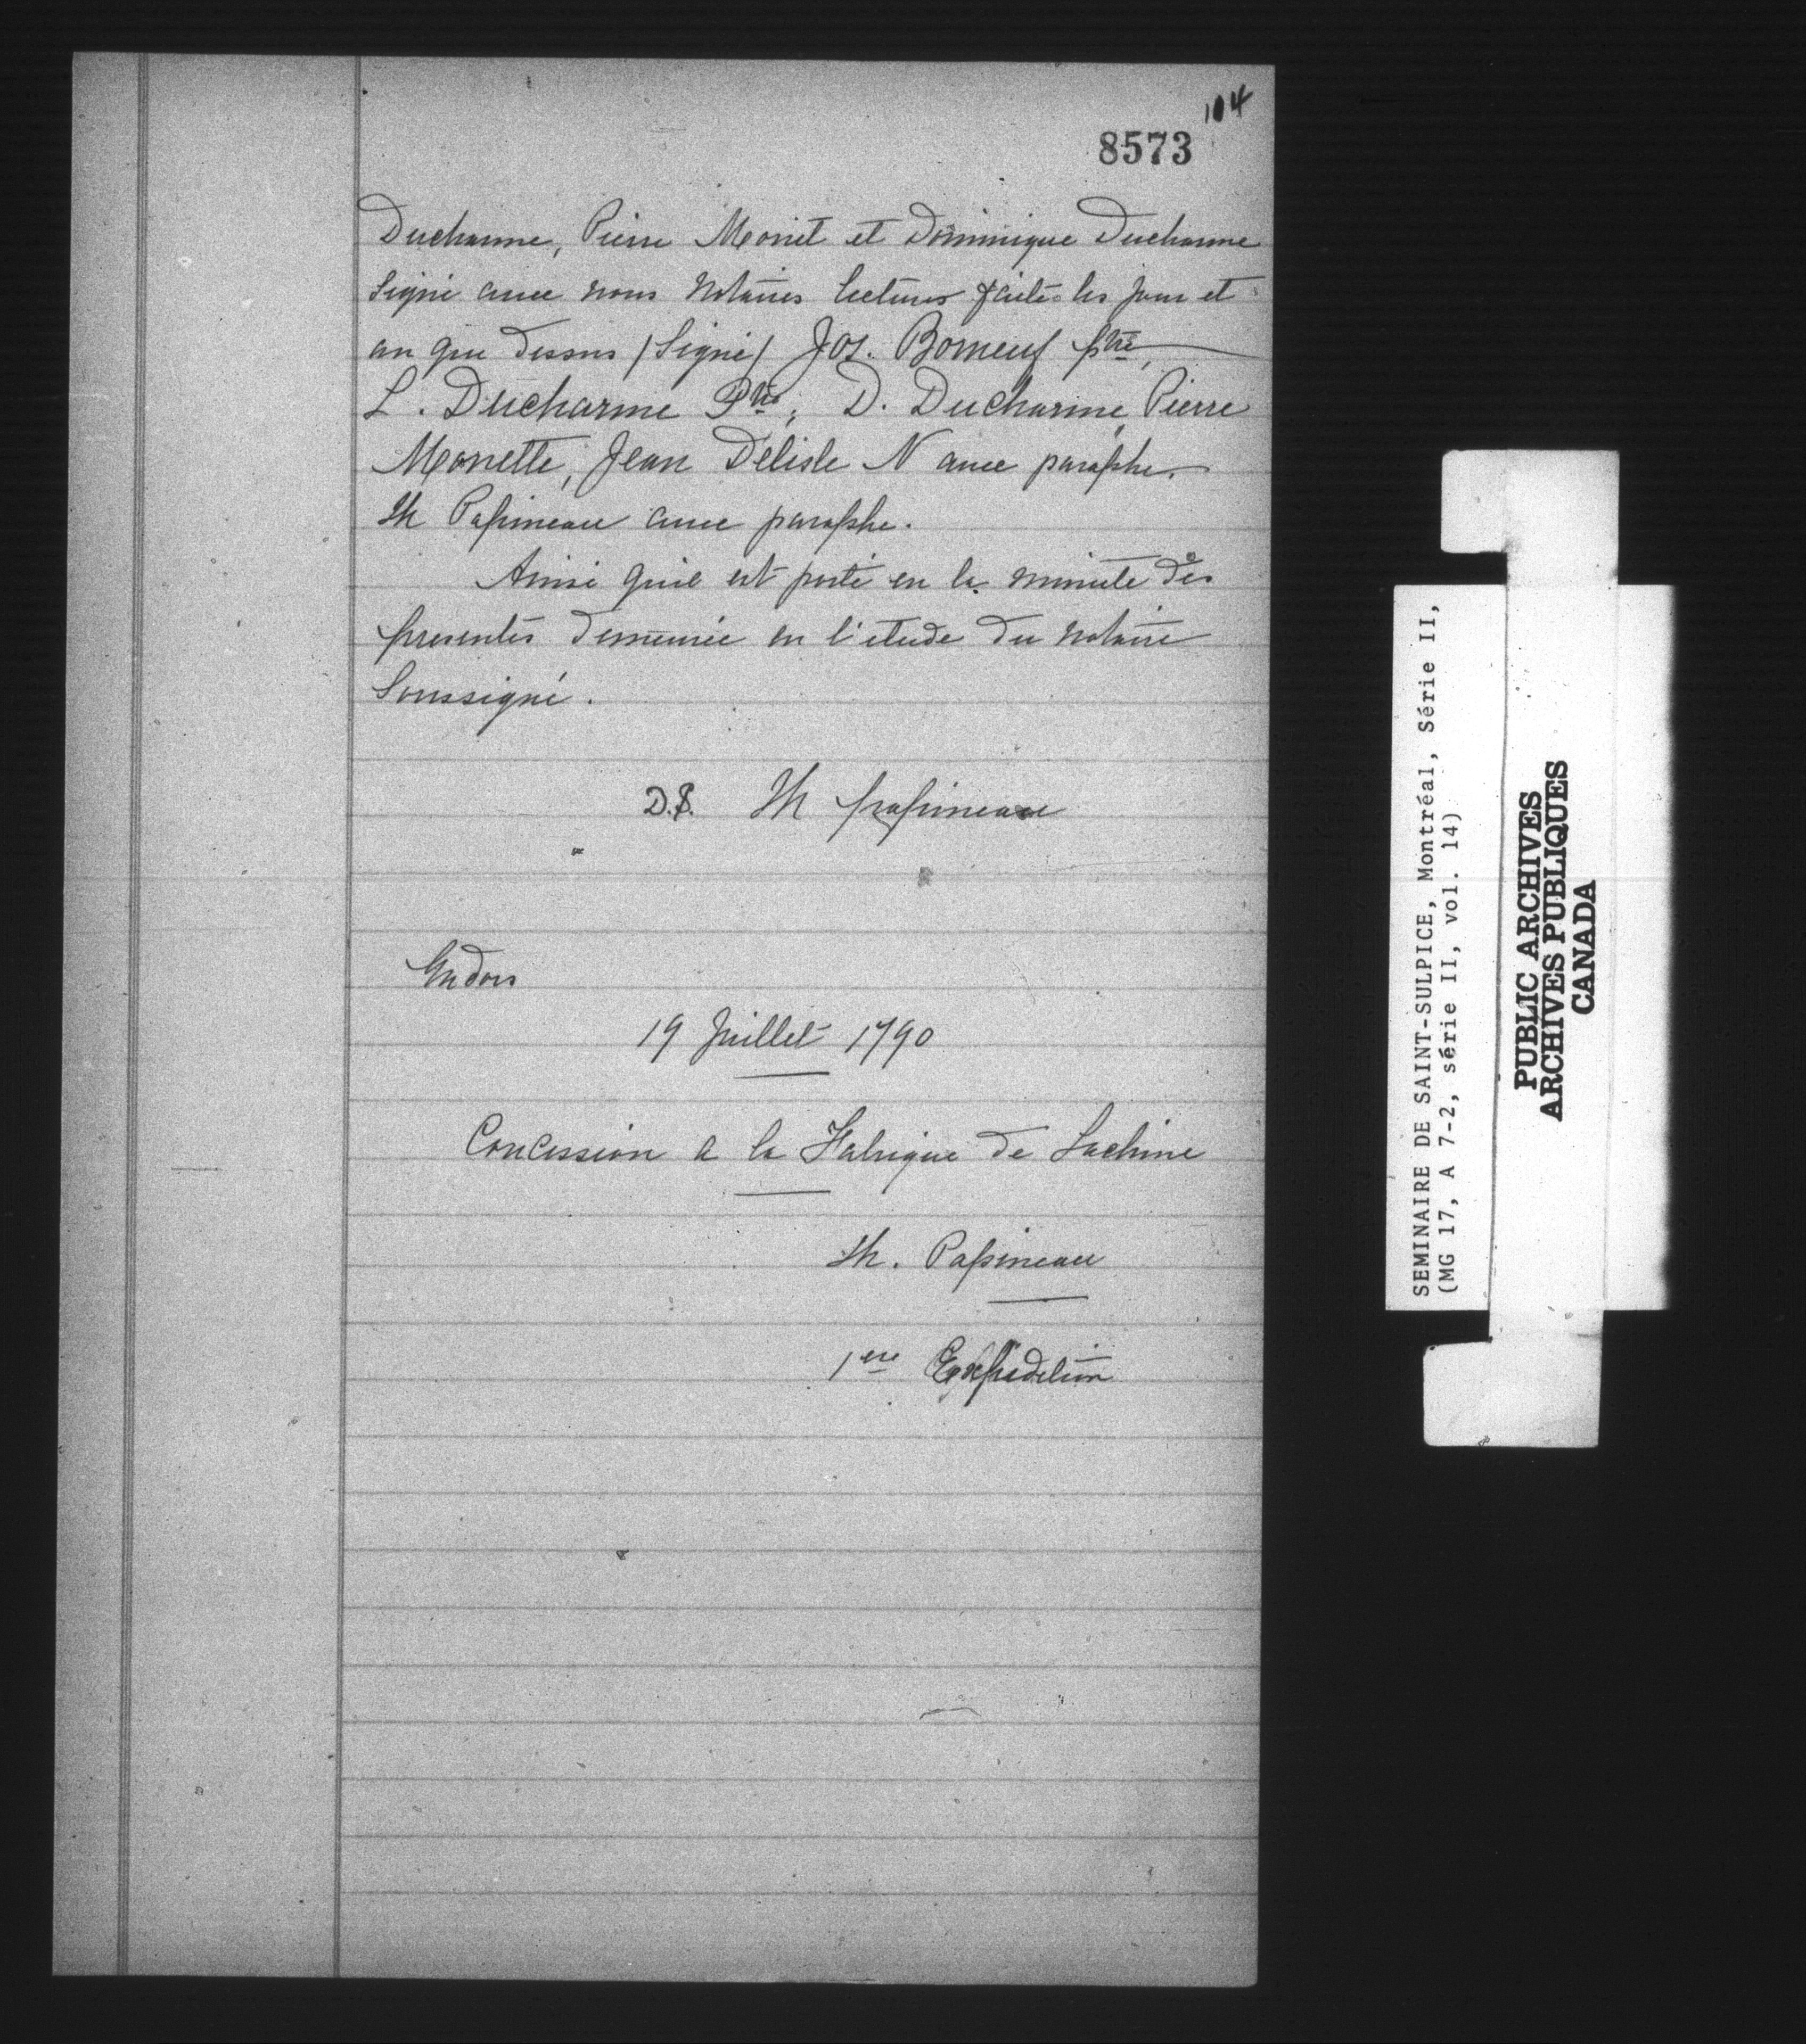 104
8573
Ducharme, Pierre Monet et Dominique Ducharme
Signé avec nous Notaires lecture faite les jour et
an que dessus /Signé/ Jos. Borneuf ptre,
L. Ducharme Ptre, D. Ducharme, Pierre
Monette, Jean Delisle N avec paraphe.
Th Papineau avec paraphe.
Ainsi qu'il est porté en la minute des
presentes demeurée en l'etude du notaire
Soussigné.
Th papineau
Endos
19 Juillet 1790
Concession a la Fabrique de Lachine
Th. Papineau
1ere Expedition
SEMINAIRE DE SAINT-SULPICE, Montréal, Série II,
(MG 17, A 7-2, série II, vol. 14)
PUBLIC ARCHIVES
ARCHIVES PUBLIQUES
CANADA